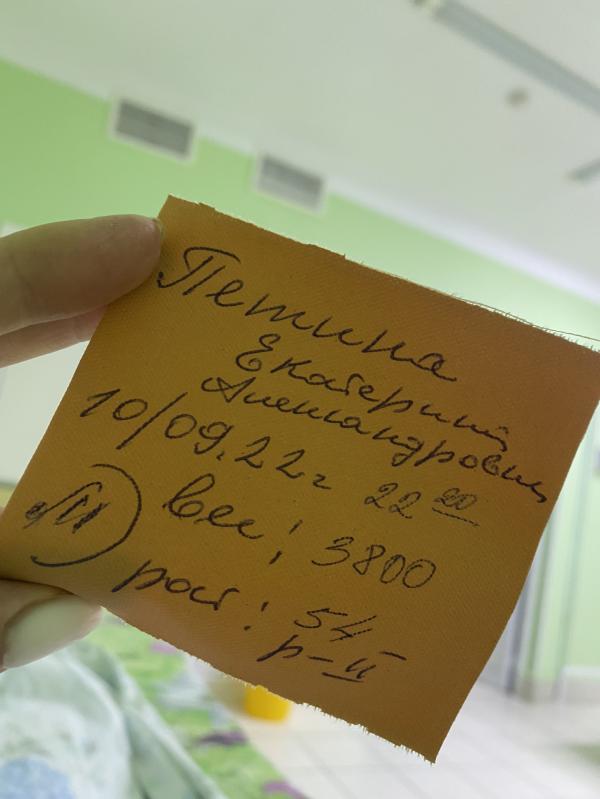 Петина
Екатерина
Александровн
10/09.22г 22 20
вес: 3800
рост: 54
р-II